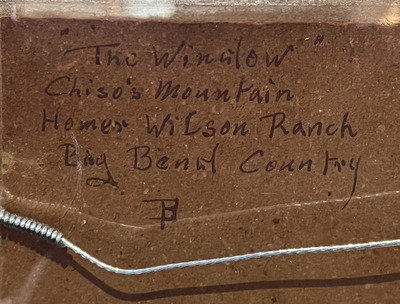 "The Window"
Chiso's Mountain
Homer Wilson Ranch
Big Bend Country